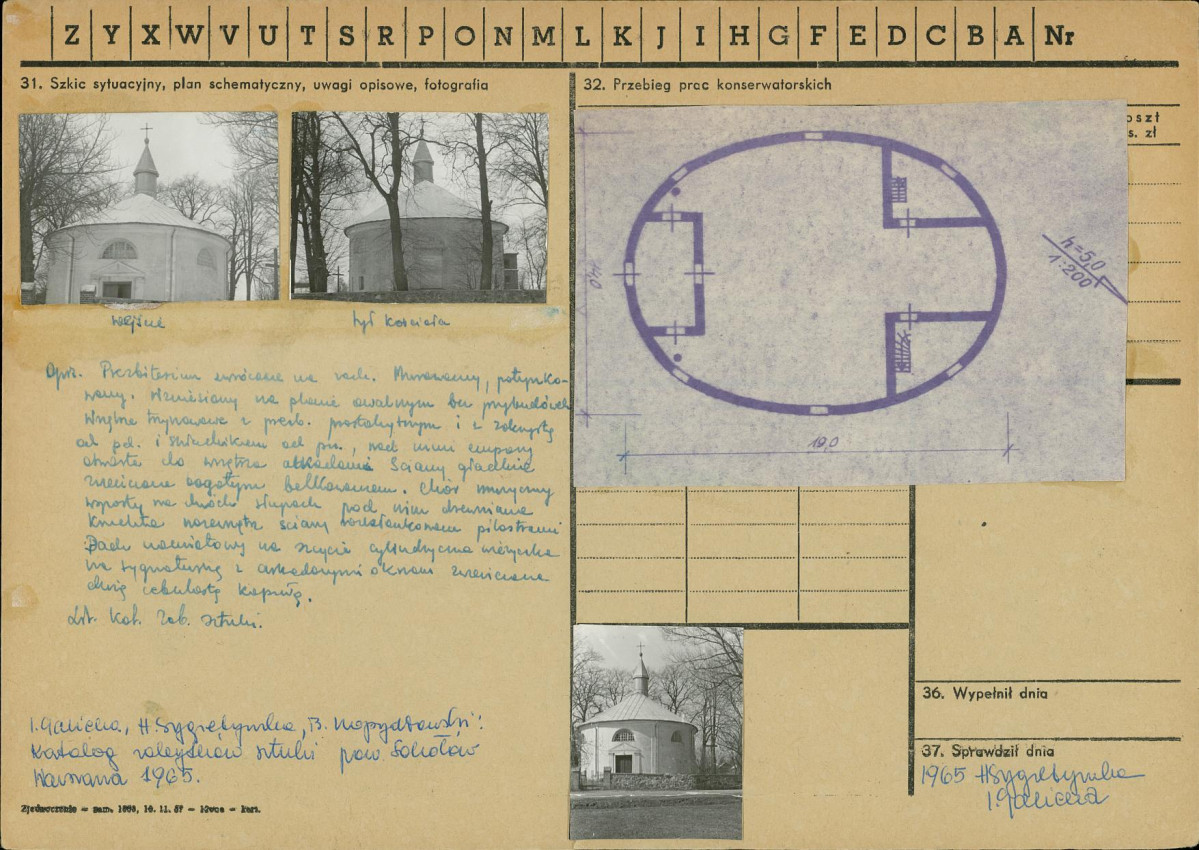 Z Y X W V U T S R P O N M L K J I H G F E D C B A Nr
31. Szkic sytuacyjny, plan schematyczny, uwagi opisowe, fotografia
wejście
tył kościoła
Opis. Prezbiterium zwrócone na zach. Murowany, potynko-
wany. Wzniesiony na planie owalnym bez przybudówek
Wnętrze trójnawowe z prezb. prostokątnym i z zakrystią
od pd. i skarbczykiem od pn., nad nimi empory
otwarte do wnętrza arkadami. Ściany gładkie
zwieńczone bogatym belkowaniem. Chór muzyczny
wsparty na dwóch słupach pod nim drewniana
kruchta zewnątrz ściany rozczłonkowane pilastrami
Dach namiotowy na szczycie cylindryczna wieżyczka
na sygnaturkę z arkadowymi oknami zwieńczona
cebulastą kopułą.
Lit. Kat. Zab. Sztuki.
I. Galicka, H. Sygietyńska, B. Kopydłowski:
Katalog zabytków sztuki pow Sokołów
Warszawa 1965.
Zjednoczenie — zam. 1093, 10. 11. 57 — — kart.
32. Przebieg prac konserwatorskich
oszt
s. zł
h=5,0
1:200
14,0
19,0
36. Wypełnił dnia
37. Sprawdził dnia
1965 HSygietyńska
I. Galicka